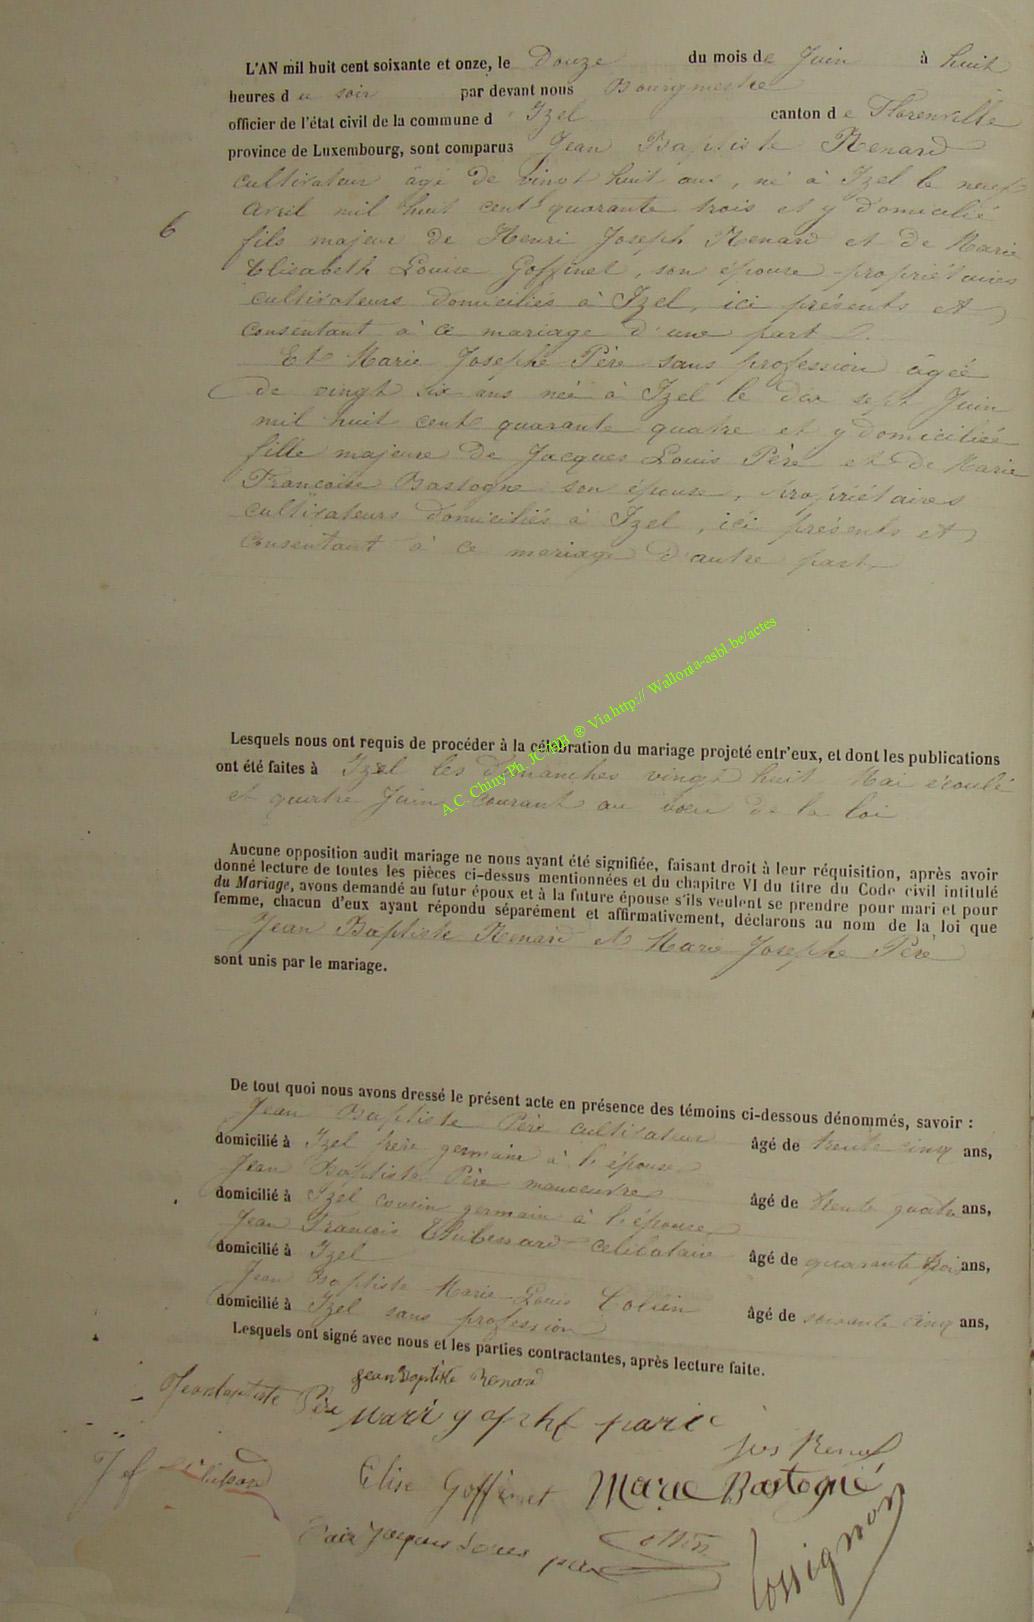 L'AN mil huit cent soixante et onze, le Douze du mois de Juin à huit
heures du soir par devant nous Bourgmestre
officier de l'état civil de la commune d'Izel canton de Florenville
province de Luxembourg, sont comparus Jean Baptiste Renard
cultivateur âgé de vingt huit ans, né à Izel le neuf
avril mil huit cent quarante trois et y domicilié
6
fils majeur de Henri Joseph Renard et de Marie
Elisabeth Louise Goffinet, son épouse propriétaires
cultivateurs domiciliés à Izel, ici présents et
consentant à ce mariage d'une part
Et Marie Josephe Père sans profession âgée
de vingt six ans née à Izel le dix sept Juin
mil huit cent quarante quatre et y domiciliée
fille majeure de Jacques Louis Père et de Marie
Francoise Bastogne son épouse, propriétaires
cultivateurs domiciliés à Izel, ici présents et
consentant à ce mariage d'autre part
A.C. Chiny Ph. JC HB ® Via http:// Wallonia-asbl.be/actes
Lesquels nous ont requis de procéder à la célébration du mariage projeté entr'eux, et dont les publications
ont été faites à Izel les dimanches vingt huit Mai écoulé
et quatre Juin courant au voeu de la loi
Aucune opposition audit mariage ne nous ayant été signifiée, faisant droit à leur réquisition, après avoir
donné lecture de toutes les pièces ci-dessus mentionnées et du chapitre VI du titre du Code civil intitulé
du Mariage, avons demandé au futur époux et à la future épouse s'ils veulent se prendre pour mari et pour
femme, chacun d'eux ayant répondu séparément et affirmativement, déclarons au nom de la loi que
Jean Baptiste Renard et Marie Josephe Père
sont unis par le mariage.
De tout quoi nous avons dressé le présent acte en présence des témoins ci-dessous dénommés, savoir :
Jean Baptiste Père cultivateur âgé de trente cinq ans,
domicilié à Izel frère germain à l'épouse
Jean Baptiste Père manoeuvre âgé de trente quatre ans,
domicilié à Izel cousin germain à l'épouse
Jean Francois Thibessard célibataire âgé de quarante trois ans,
domicilié à Izel
Jean Baptiste Marie Louis Collin âgé de soixante cinq ans,
domicilié à Izel sans profession
Lesquels ont signé avec nous et les parties contractantes, après lecture faite.
jean Baptiste Renard
Jeanbaptiste Père
Elise Goffinet Marie Bastogne
Rossignon